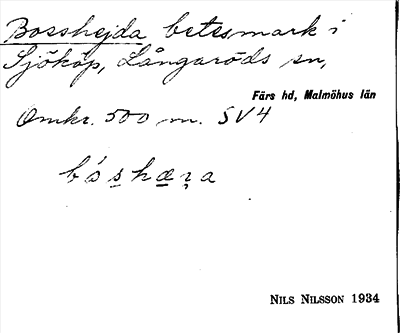 Bosshejda betesmark i
Sjököp, Långaröds sn,
Färs hd, Malmöhus län
Omkr. 500 m. SV4
bóshæra
NILS NILSSON 1934